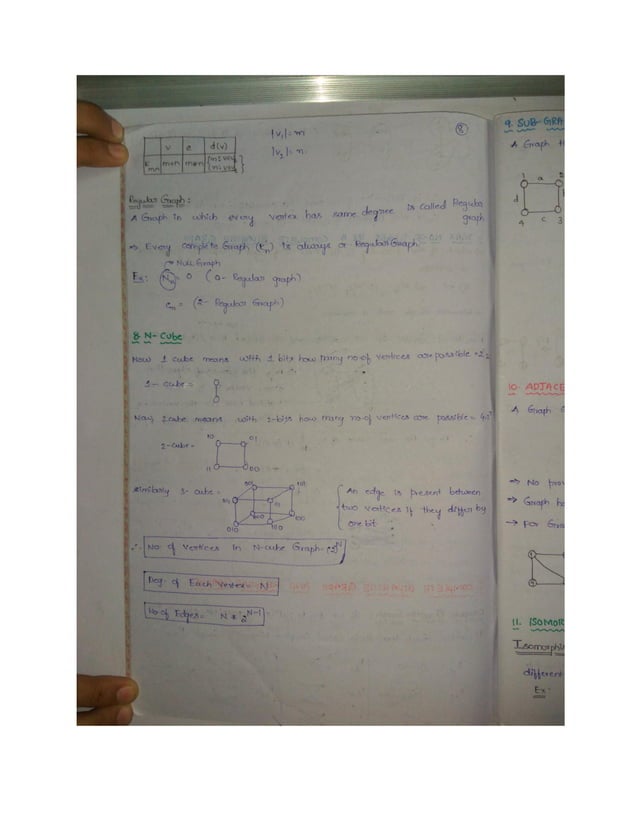 8
|V₁| = m
|V₂| = n
v e d(v)
Kmn m+n m*n
Regular Graph:
A Graph in which every vertex has same degree is called Regular graph
⇒ Every complete Graph (Kn) is always a Regular Graph.
Null Graph
Ex: Nn = 0 (0- Regular graph)
Cn = (2- Regular Graph)
8 N- Cube
Now 1 cube means with 1 bits how many no.of vertices are possible =
1- cube =
Now, 2cube means with 2-bits how many no.of vertices are possible =
10 01
2-cube =
11 00
similarly 3- cube =
010 100
An edge is present between
two vertices if they differ by
one bit
∴ No of vertices in N-cube Graph = (2)^N
Deg. of Each vertex = N
No of Edges = N * 2^N-1
9. SUB-GRA
A Graph
1 a
d
4 c 3
10. ADJACE
A Graph
⇒ No
⇒ Graph
→ For Gra
11. ISOMOR
Isomorphi
different
Ex: